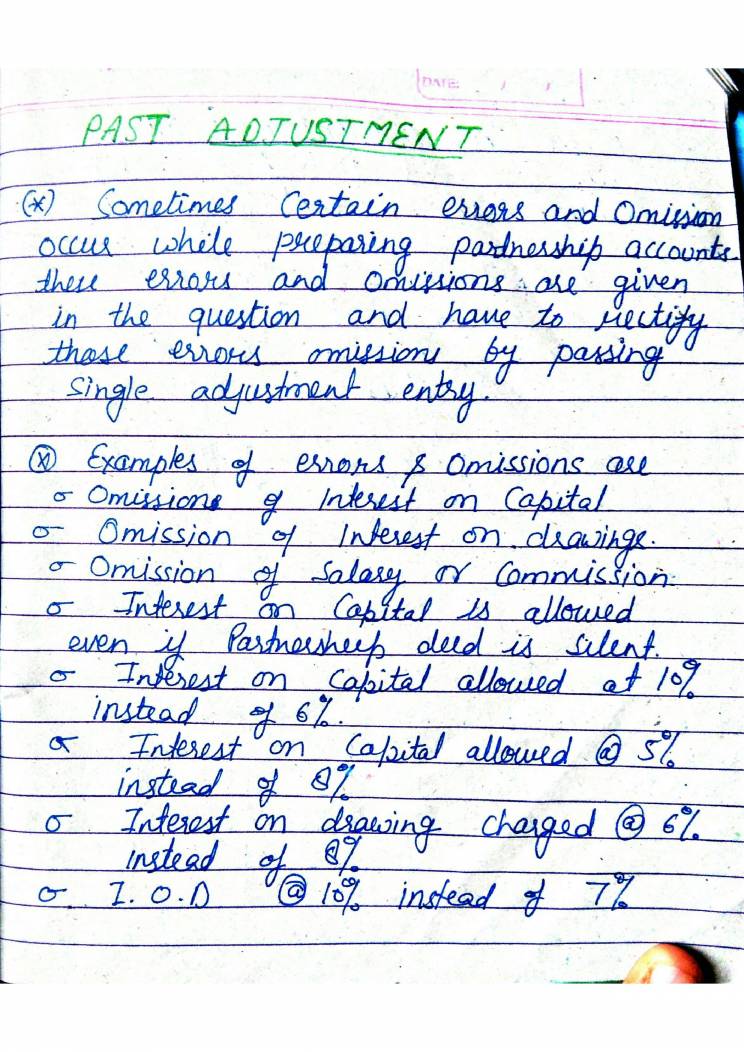 DATE
PAST ADJUSTMENT
(*) Sometimes Certain errors and Omission
occur while preparing partnership accounts.
these errors and omissions are given
in the question and have to rectify
those errors omissions by passing
single adjustment entry.
(*) Examples of errors & omissions are
Omissions of Interest on Capital
Omission of Interest on drawings.
Omission of Salary or Commission.
Interest on Capital is allowed
even if Partnersheep deed is silent.
Interest on Capital allowed at 10%
instead of 6%.
Interest on Capital allowed @ 5%
instead of 8%
Interest on drawing charged @ 6%
instead of 8%
I.O.D @ 10% instead of 7%